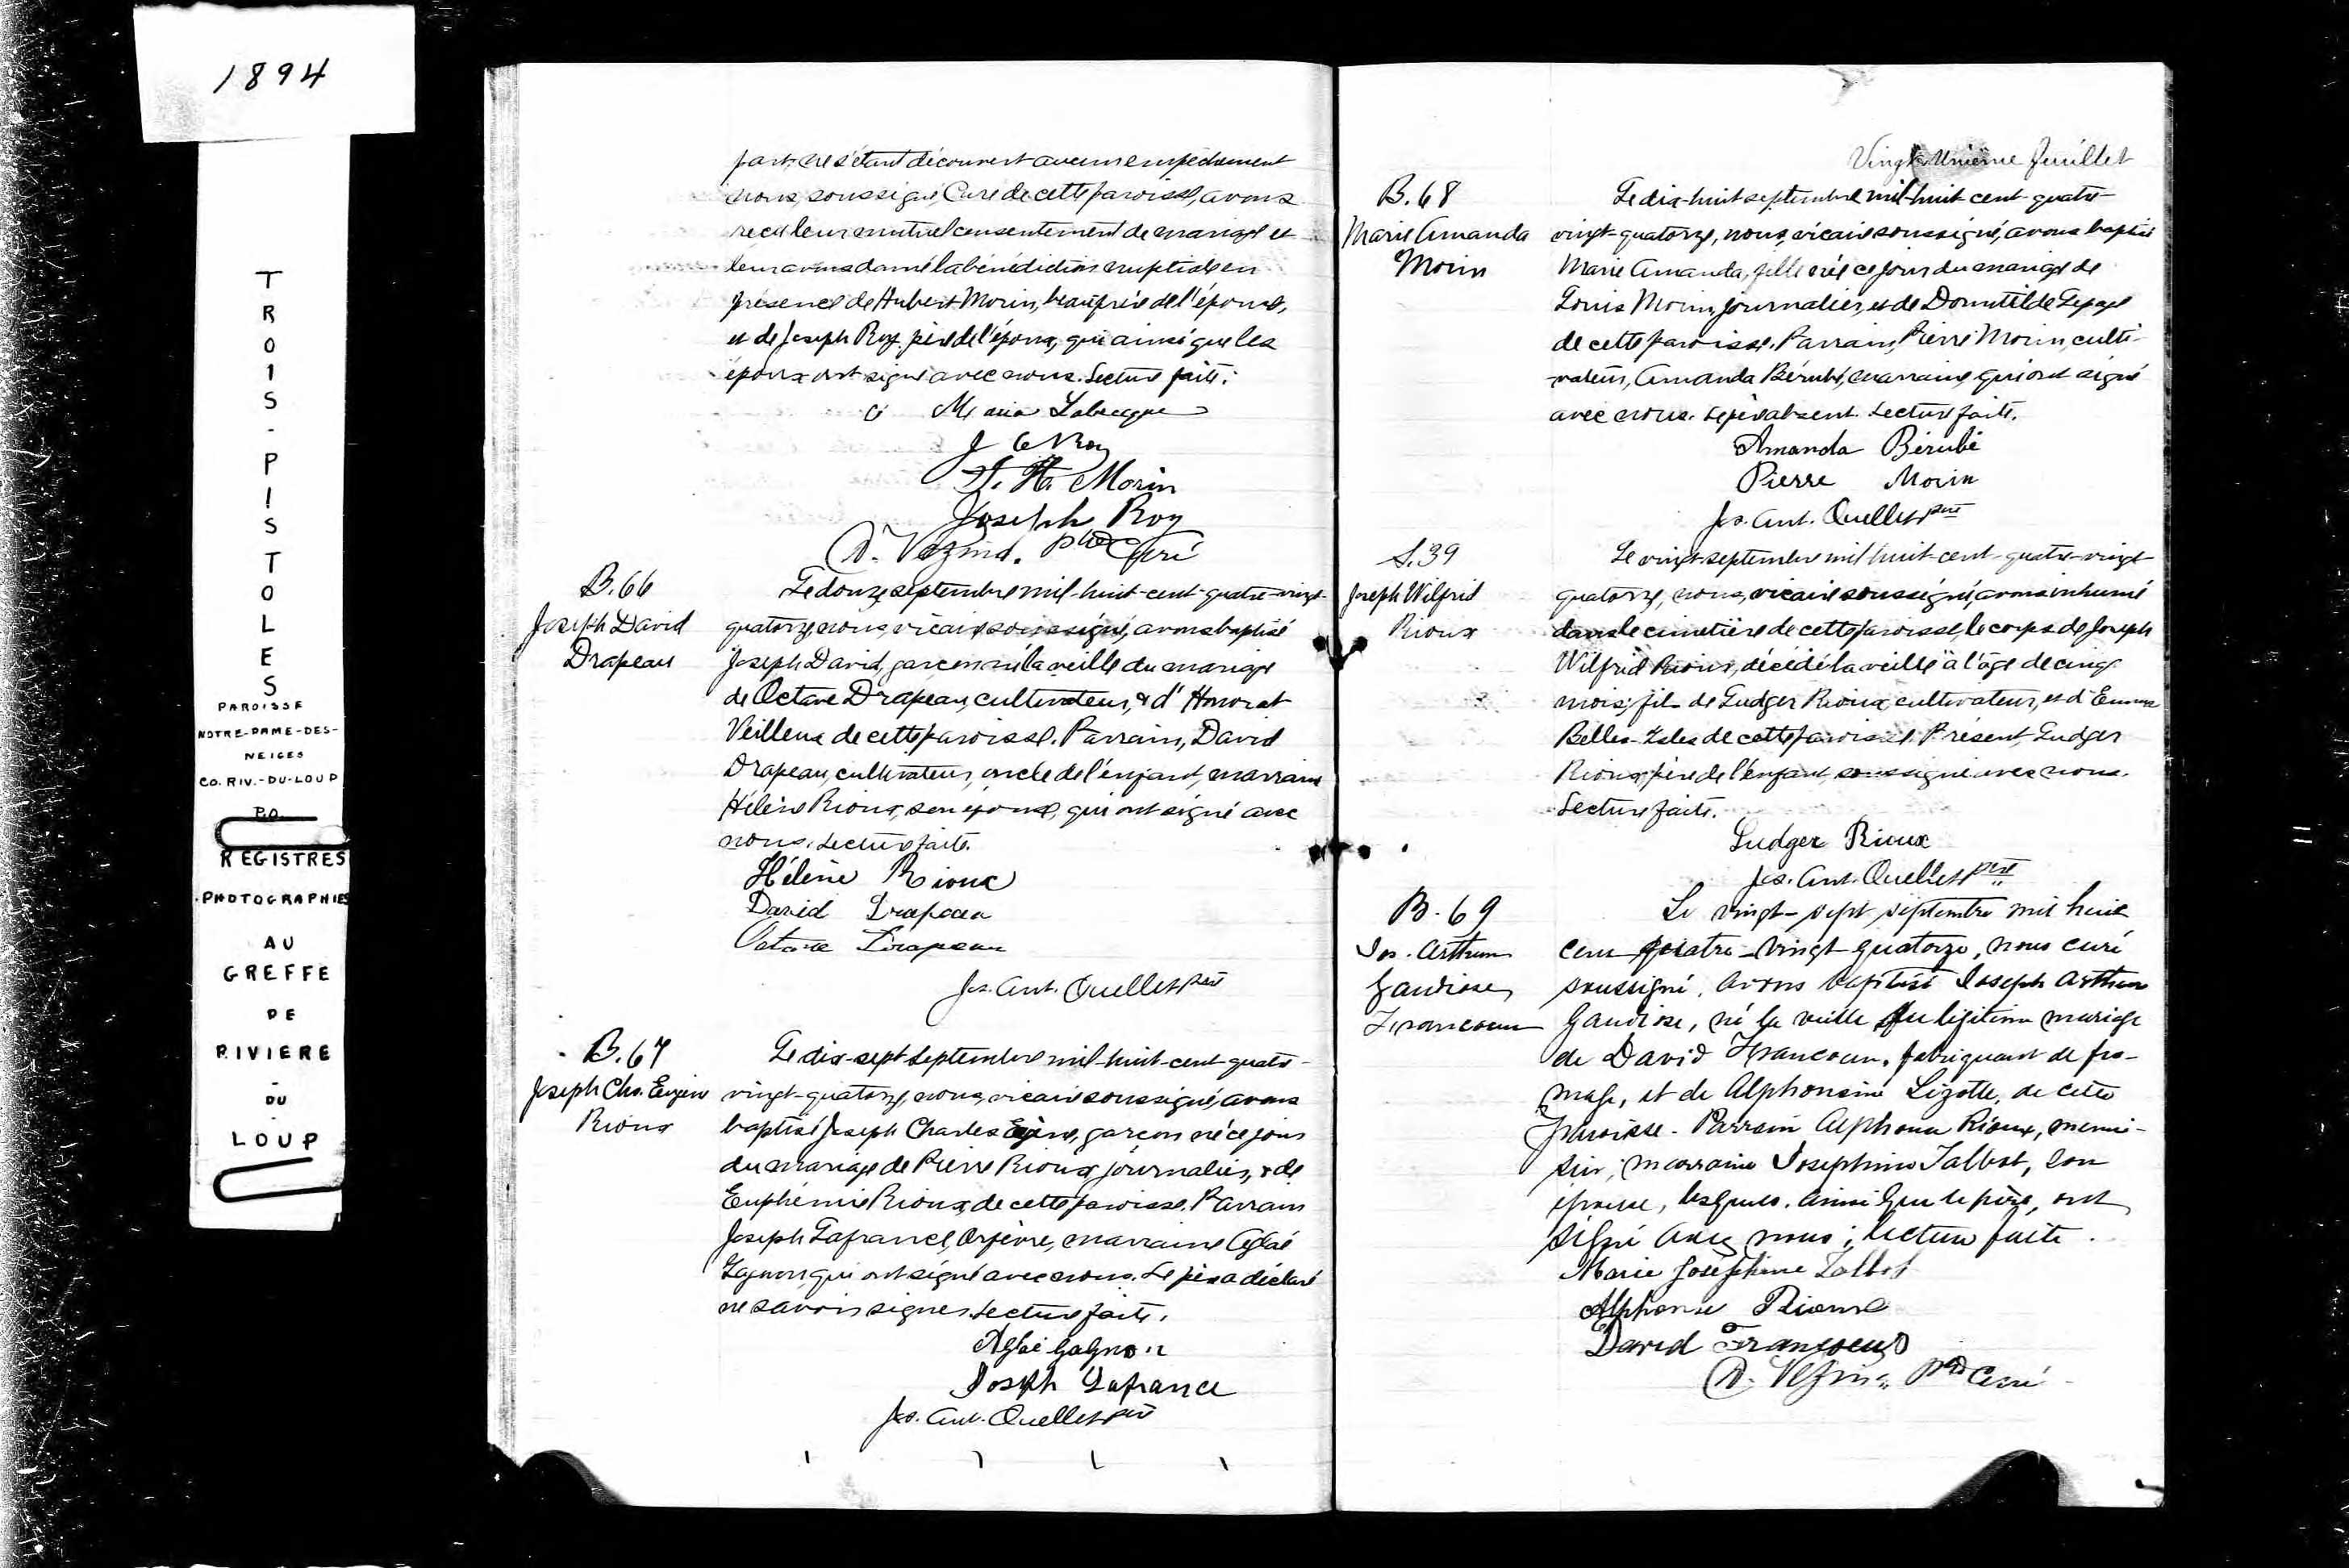 1894
TROIS-PISTOLES
PAROISSE
NOTRE-DAME-DES-
NEIGES
CO. RIV.-DU-LOUP
P.Q.
REGISTRES
PHOTOGRAPHIES
AU
GREFFE
DE
RIVIERE
-
DU
-
LOUP
part, ne s'étant découvert aucun empêchement
nous, soussigné, Curé de cette paroisse, avons
reçu leur mutuel consentement de mariage et
leur avons donné la bénédiction nuptiale en
présence de Hubert Morin, beaufrère de l'épouse,
et de Joseph Roy, père de l'époux, qui ainsi que les
époux ont signé avec nous. Lecture faite.
Maria Labecque
J Roy
H. Morin
Joseph Roy
Vézina. Ptre Curé
B.66
Joseph David
Drapeau
Le douze septembre mil-huit-cent-quatre-vingt-
quatorze, nous, vicaire soussigné, avons baptisé
Joseph David, garçon né la veille du mariage
de Octave Drapeau, cultivateur, & d'Honorat
Veilleux de cette paroisse. Parrain, David
Drapeau, cultivateur, oncle de l'enfant, marraine
Hélène Rioux, son épouse, qui ont signé avec
nous. Lecture faite.
Hélène Rioux
David Drapeau
Octave Drapeau
Jos. Ant. Ouellet ptre
B.67
Joseph Chs. Eugène
Rioux
Le dix-sept septembre mil-huit-cent-quatre-
vingt-quatorze, nous, vicaire soussigné, avons
baptisé Joseph Charles Eugène, garçon né ce jour
du mariage de Pierre Rioux, journalier, & de
Euphémie Rioux, de cette paroisse. Parrain
Joseph Lafrance, Orfèvre, marraine Aglaé
Gagnon, qui ont signé avec nous. Le père a déclaré
ne savoir signer. Lecture faite.
Aglaé Gagnon
Joseph Lafrance
Jos. Ant. Ouellet ptre
Vingt-Unième Feuillet
B.68
Marie Amanda
Morin
Le dix-huit septembre mil-huit-cent-quatre-
vingt-quatorze, nous, vicaire soussigné, avons baptisé
Marie Amanda, fille née ce jour du mariage de
Louis Morin, journalier, et de Domitilde Lepage
de cette paroisse. Parrain, Pierre Morin, culti-
-vateur, Amanda Bérubé, marraine, qui ont signé
avec nous. Le père absent. Lecture faite.
Amanda Bérubé
Pierre Morin
Jos. Ant. Ouellet ptre
S.39
Joseph Wilfrid
Rioux
Le vingt septembre mil huit-cent-quatre-vingt-
quatorze, nous, vicaire soussigné, avons inhumé
dans le cimetière de cette paroisse, le corps de Joseph
Wilfrid Rioux, décédé la veille à l'âge de cinq
mois, fils de Ludger Rioux, cultivateur, et d'Emma
Belles-Isles de cette paroisse. Présent, Ludger
Rioux, père de l'enfant, soussigné avec nous.
Lecture faite.
Ludger Rioux
Jos. Ant. Ouellet ptre
B.69
Jos. Arthur
Gaudiose
Francoeur
Le vingt-sept septembre mil huit
cent quatre-vingt-quatorze, nous curé
soussigné, avons baptisé Joseph Arthur
Gaudiose, né la veille du légitime mariage
de David Francoeur, fabriquant de fro-
mage, et de Alphonsine Lizotte, de cette
paroisse. Parrain Alphonse Rioux, menui-
sier, marraine Josephine Talbot, son
épouse, lesquels, ainsi que le père, ont
signé avec nous; lecture faite.
Marie Joséphine Talbot
Alphonse Rioux
David Francoeur
Vézina Ptre Curé